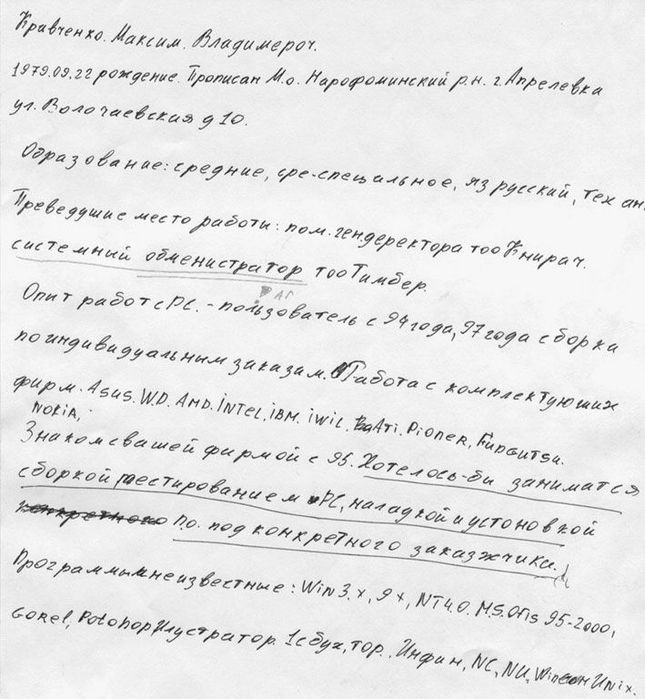 Кравченко. Максим. Владимероч.
1979.09.22 рождение. Прописан М.о. Нарофоминский р.н. г. Апрелевка
ул. Волочаевская д 10.
Образование: средние, сре-специльное, яз русский, тех ан
Преведущие место работи: пом. гендеректора тоо Книрач.
системний обменистратор тоо Тимбер.
Опит работ с PC. - пользователь с 94 года, 97 года сборка
по индивидуальным заказам. Работа с комплектующих
фирм. Asus. W.D. AMD. INTEL. IBM. IWIL. ATi. Pioner, Fungutsu.
NOKIA,
Знаком с вашей фирмой с 95. Хотелось-би заниматся
сборкой, тестированием PC, наладкой и устоновкой
п.о. под конкретного заказжчика.
Программы мне известные: Win 3.x, 9x, NT4.0. M.S. Ofis 95-2000,
Gorel, Potohop Илустратор. 1с бух, тор., Инфин, NC, NU, Wincom Unix.